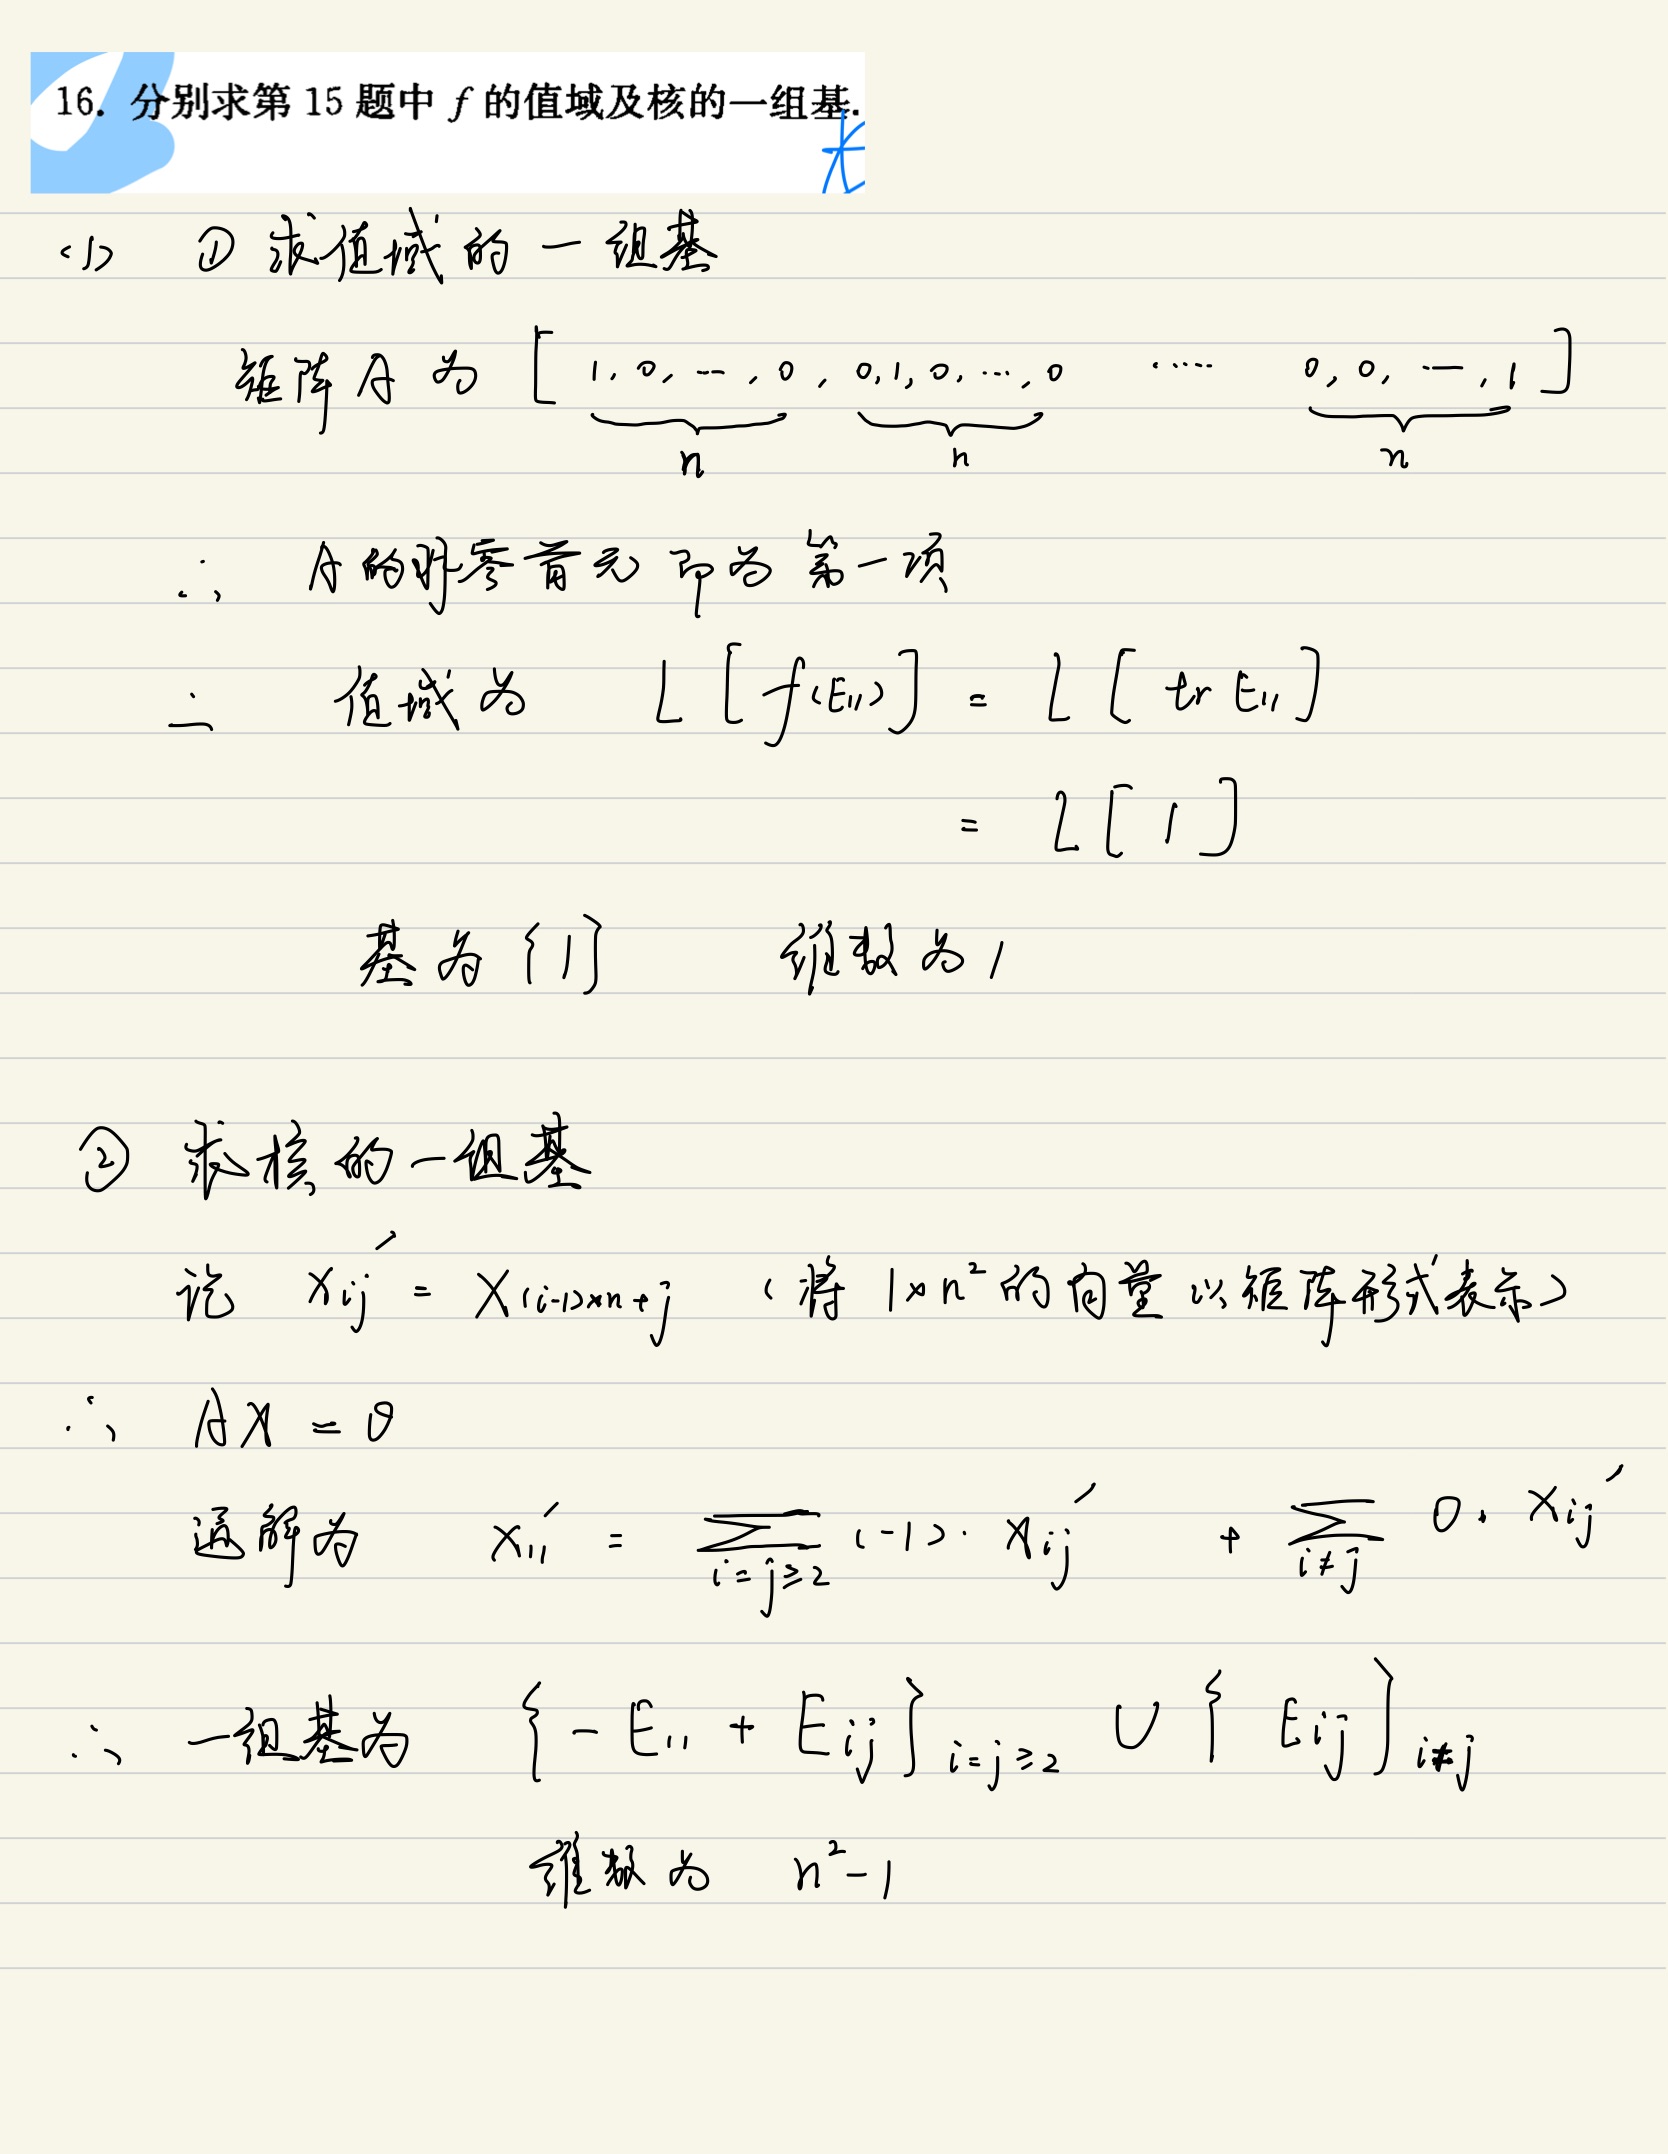 16. 分别求第 15 题中 f 的值域及核的一组基.
(1) ① 求值域的一组基
矩阵 A 为 [ 1, 0, …, 0, 0, 1, 0, …, 0 …… 0, 0, …, 1 ]
n n n
∴ A的非零首元即为第一项
∴ 值域为 L[f(E₁₁)] = L[tr E₁₁]
= L[1]
基为{1} 维数为1
② 求核的一组基
记 xij′ = x(i-1)×n+j (将 1×n² 的向量以矩阵形式表示)
∴ AX = 0
通解为 x₁₁′ = ∑ i=j≥2 (-1)· xij′ + ∑ i≠j 0· xij′
∴ 一组基为 {-E₁₁ + Eij} i=j≥2 ∪ {Eij} i≠j
维数为 n²-1